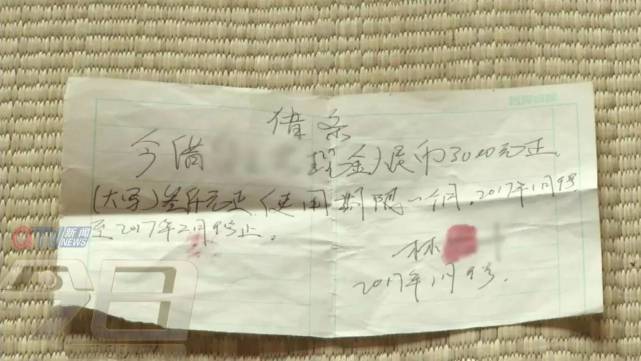 借条
今借 现金人民币3000元正
(大写)叁仟元正使用期限一个月,2017年1月9号
至2017年2月9号止。
林
2017年1月9号.
QTV 新闻
NEWS
今日